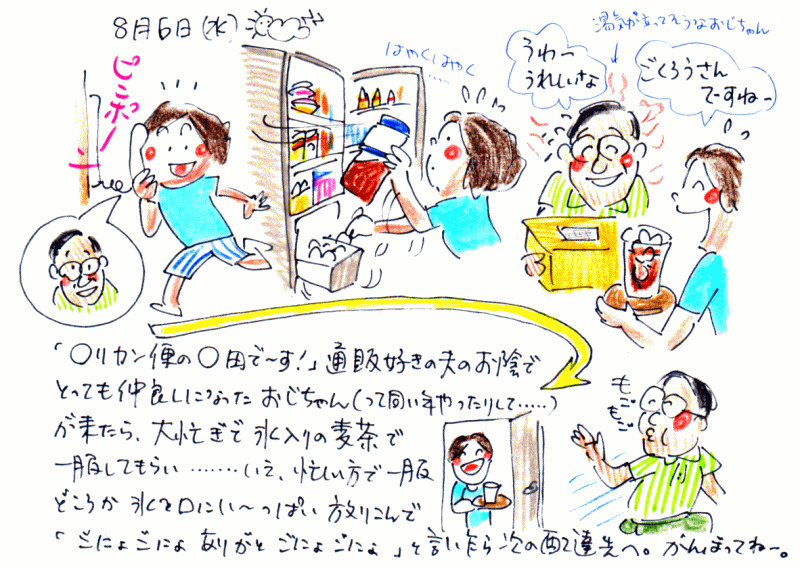 8月6日(水)
ピンポーン
はやくはやく
.....
湯気が立ってそうなおじちゃん
うわー
うれしいさよ
ごくろうさん
でーすねー
「○リカン便の○田で〜す!」通販好きの夫のお陰で
とっても仲良しになった おじちゃん(って同い年やったりして.....)
が来たら、大忙ぎで 氷入りの麦茶で
一服してもらい ........いえ、忙しい方で一服
どころか 氷を口にい〜っぱい 放りこんで
「ごにょごにょ ありがと ごにょごにょ」と言い乍ら次の配達先へ。がんばってねー。
もご
もご